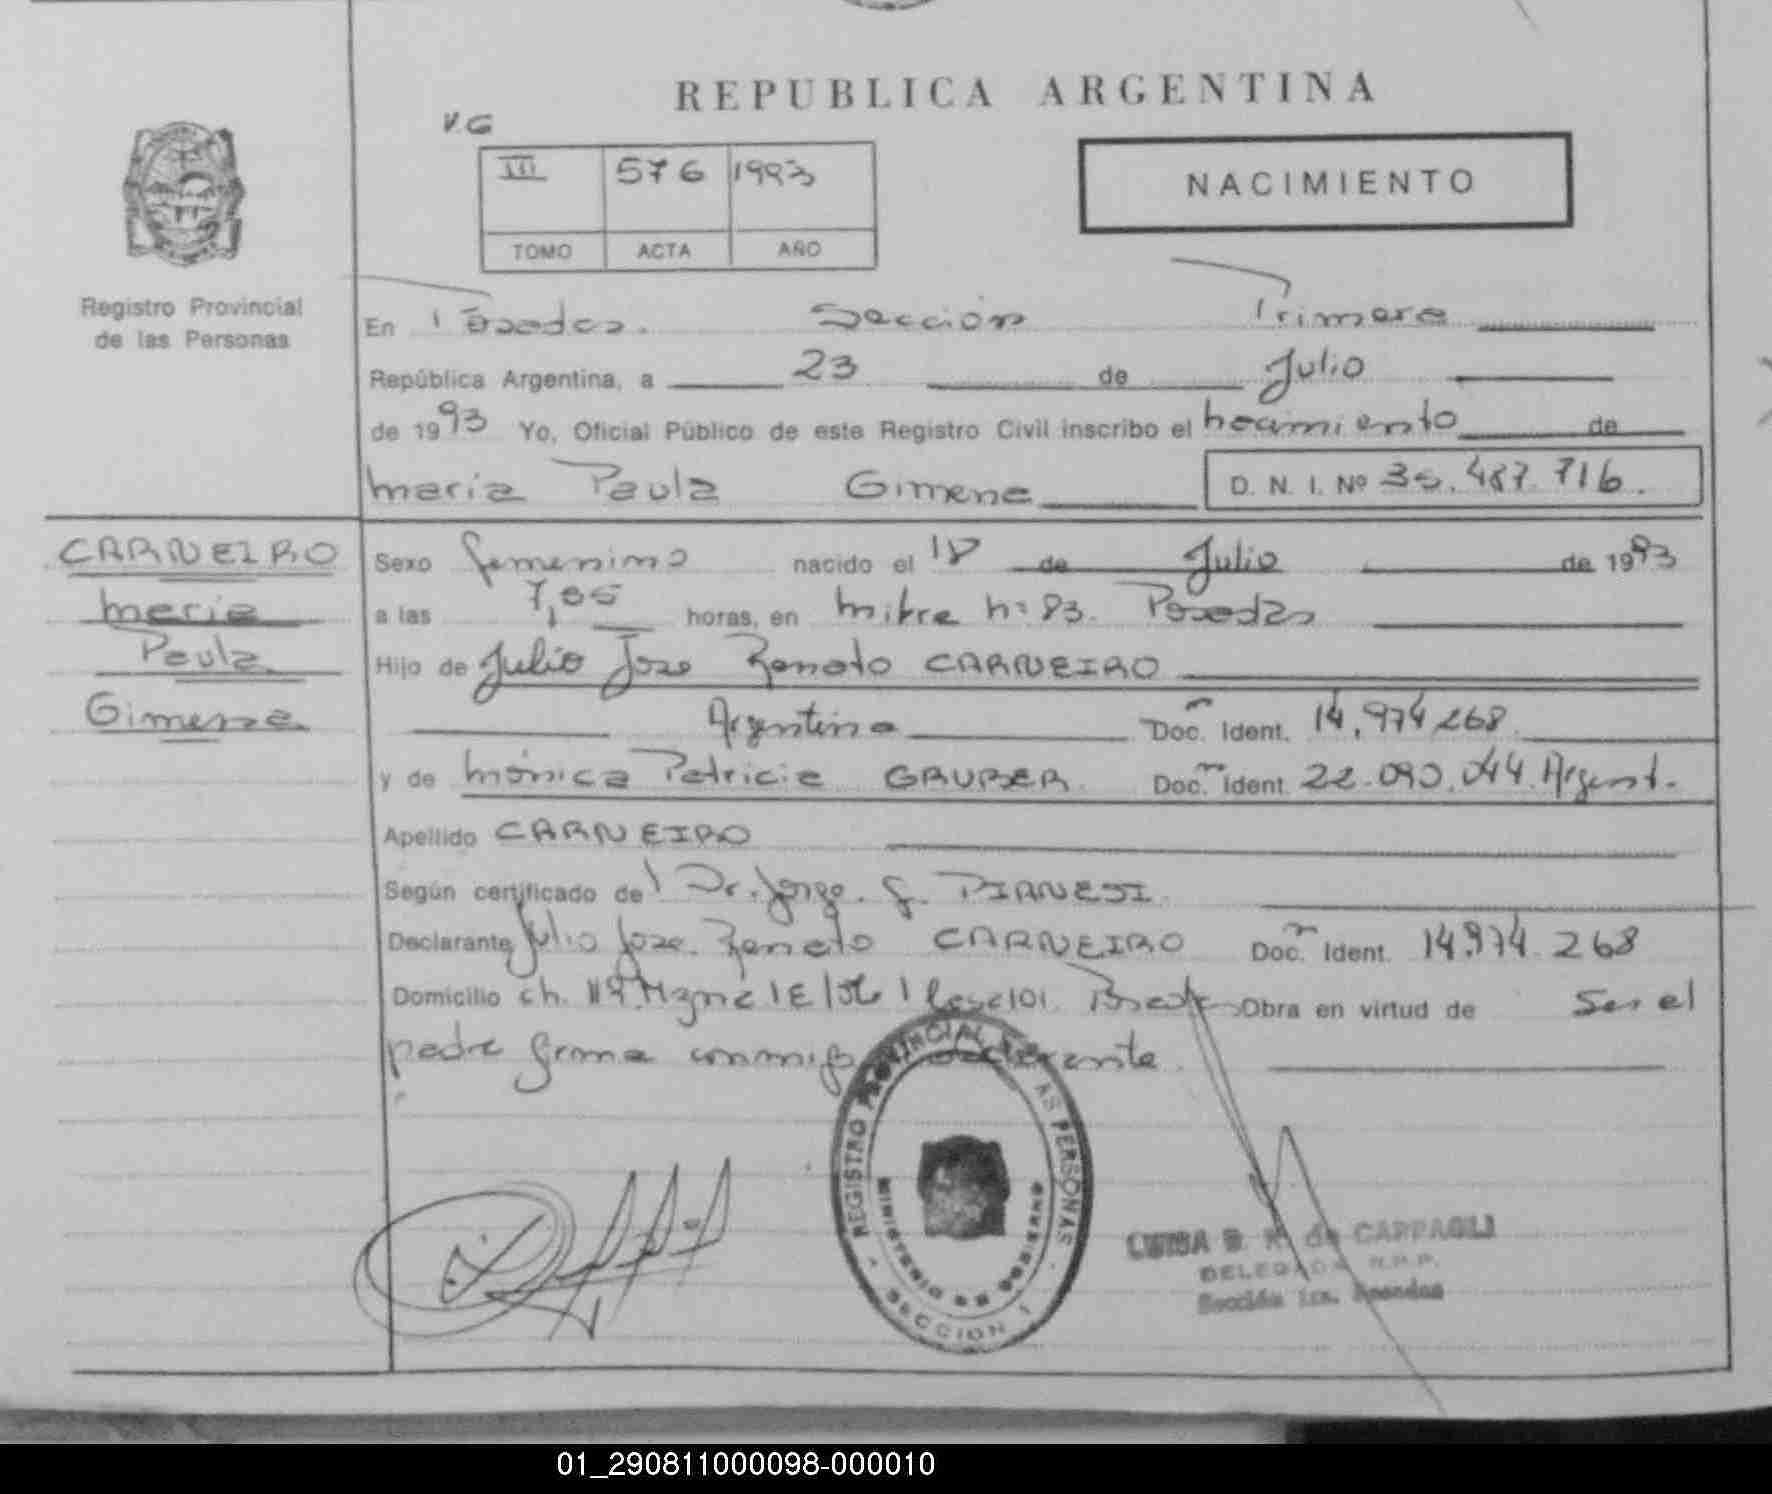 REPUBLICA ARGENTINA
V.G
III 576 1993
TOMO ACTA AÑO
NACIMIENTO
Registro Provincial
de las Personas
En Posadas. Sección Primera
República Argentina, a 23 de Julio
de 1993 Yo, Oficial Público de este Registro Civil inscribo el nacimiento de
Maria Paula Gimena D. N. I. Nº 35.487.716.
CARNEIRO
Maria
Paula
Gimena
Sexo femenino nacido el 18 de Julio de 1993
a las 7,05 horas, en Mitre nº 83. Posadas
Hijo de Julio Jose Renato CARNEIRO
Argentino Doc. Ident. 14.974.268
y de Mónica Patricia GRUBER Doc. Ident. 22.090.044. Argent.
Apellido CARNEIRO
Según certificado de Dr. Jorge. J. PIANESI.
Declarante Julio Jose Renato CARNEIRO Doc. Ident. 14.974.268
Domicilio ch. 119 1 Posadas Obra en virtud de Ser el
padre firma conmigo declarante.
REGISTRO PROVINCIAL DE LAS PERSONAS
MINISTERIO DE GOBIERNO
SECCION 1
LUISA B. R. de CARPAGLI
DELEGADA R.P.P.
Sección 1ra. Posadas
01_290811000098-000010